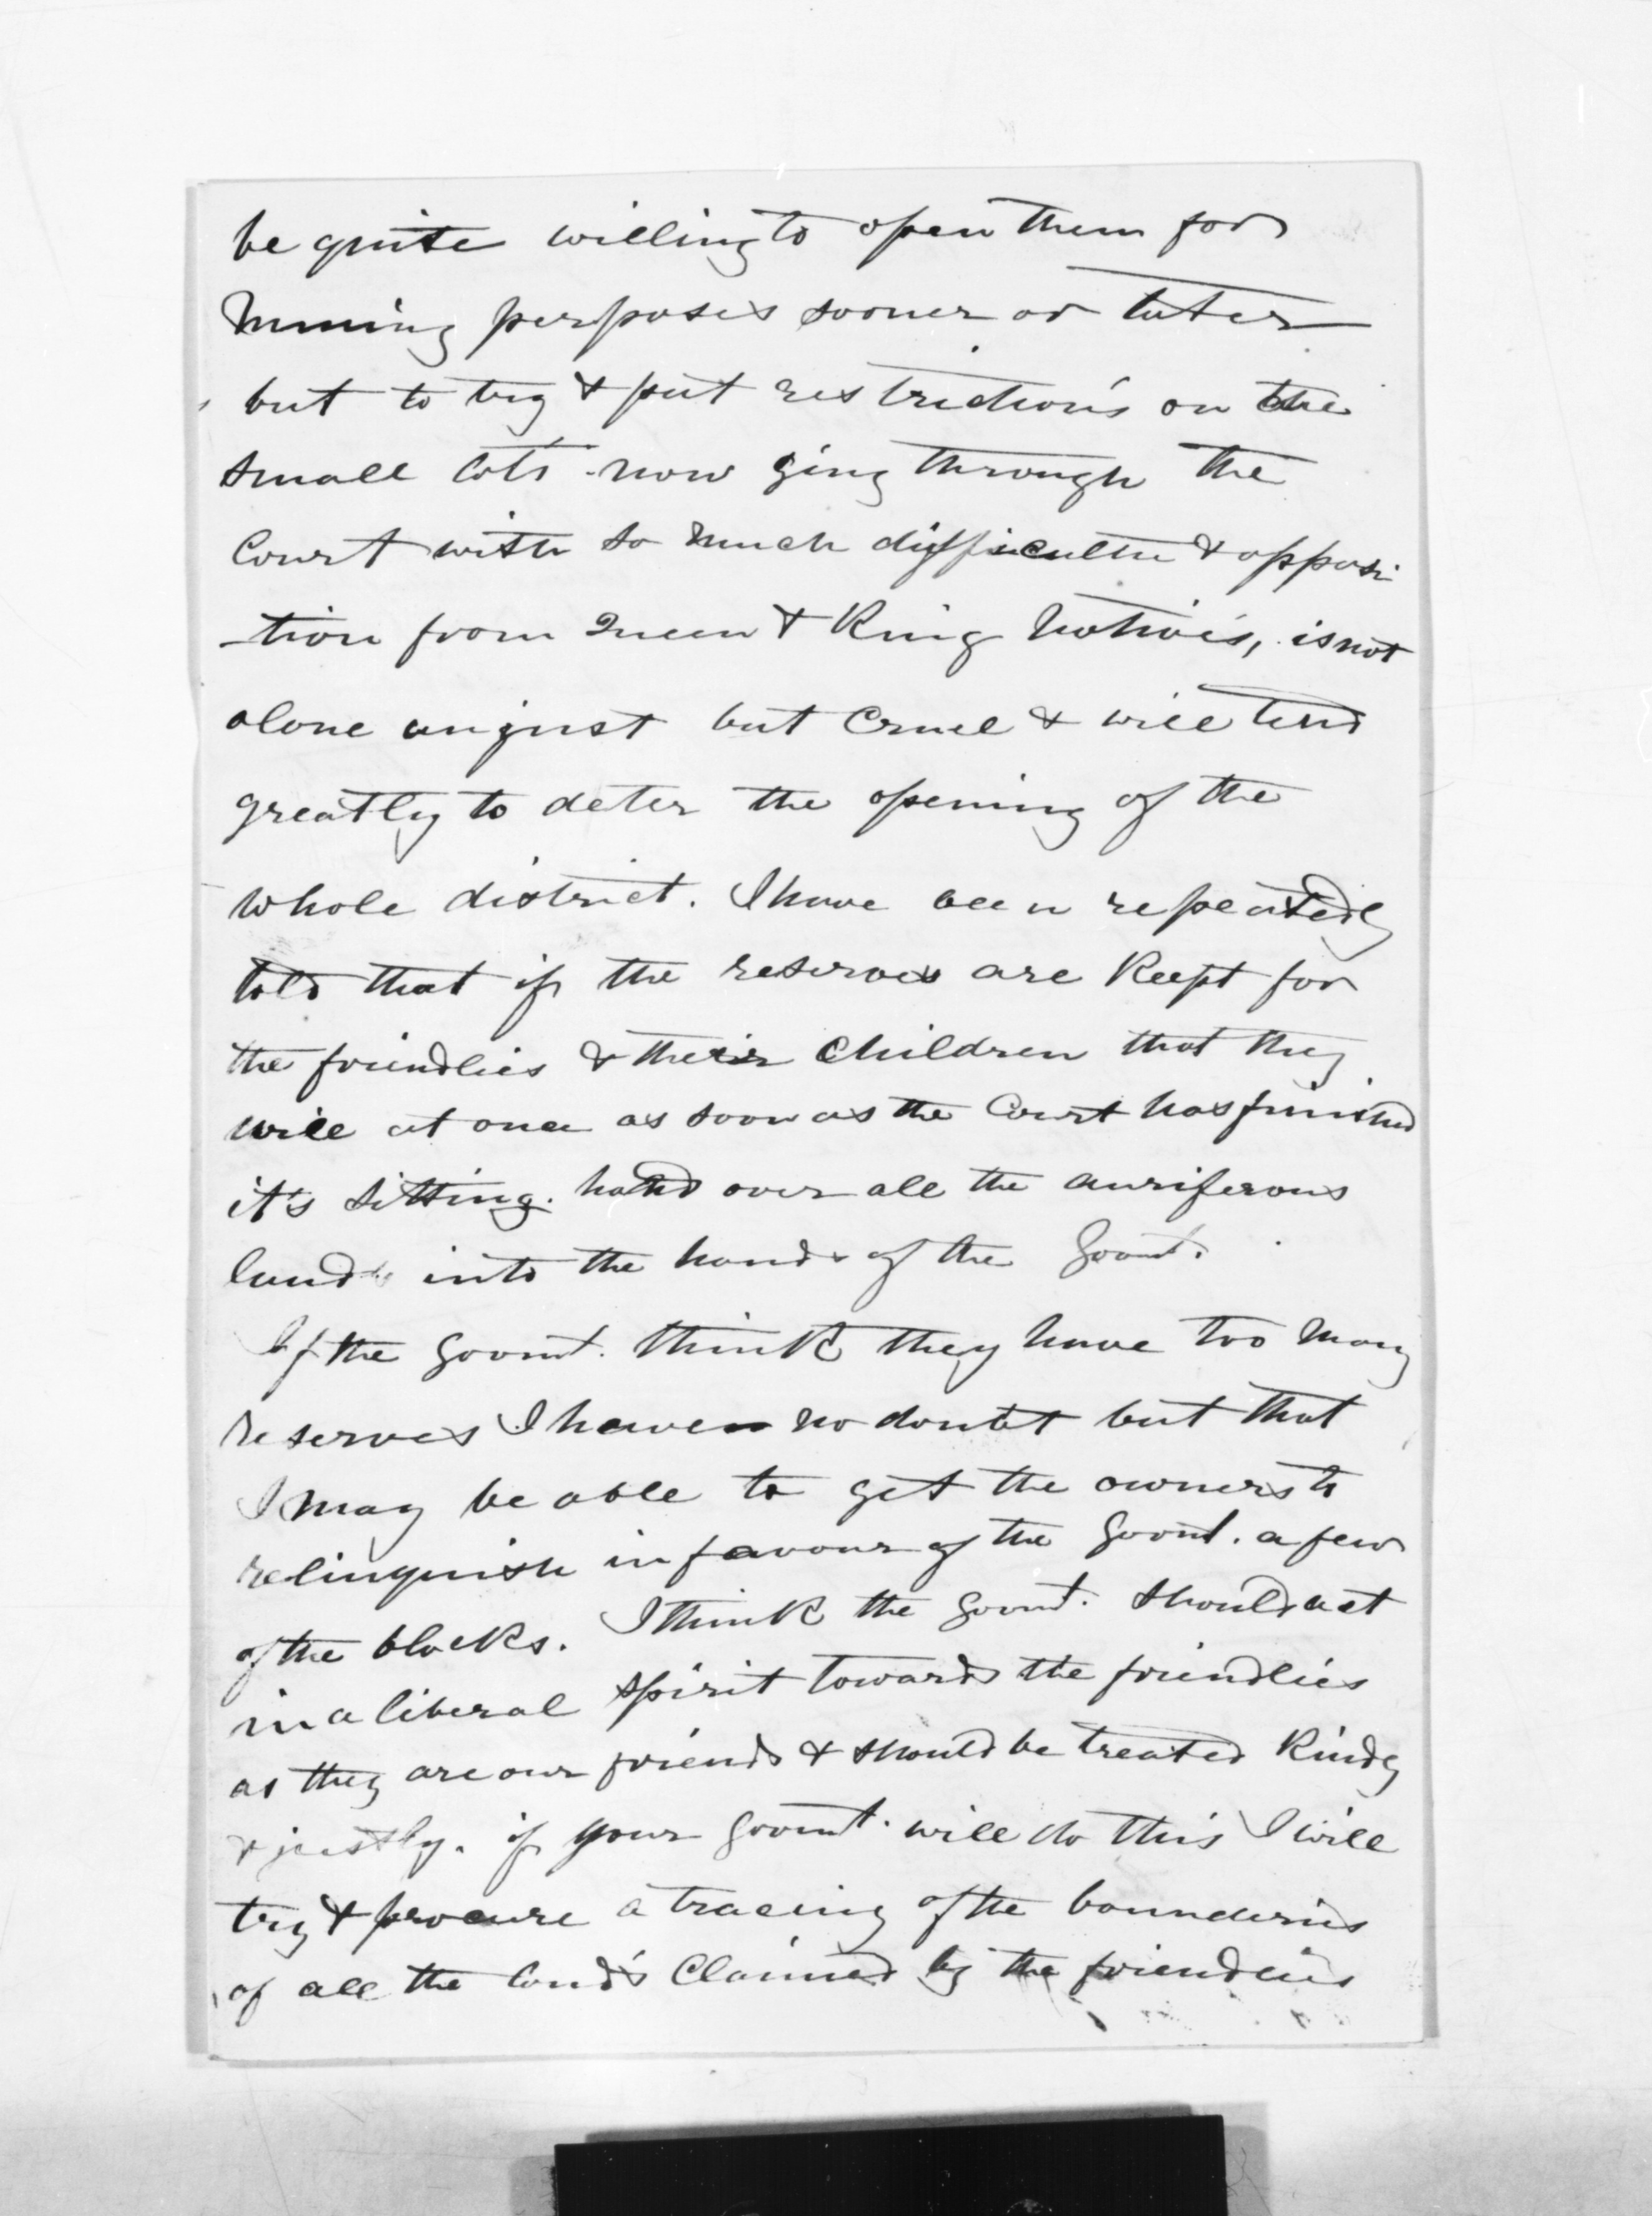 be quite willing to open them for
Mining perposes sooner or later
but to try & put restriction's on the
small lots now ging through the
Court with so much difficultu & opposi
-tion from Queen & King Native's, is not
alone unjust but Cruel & will tend
greatly to deter the opening of the
whole district. I have been repeatedly
told that if the reserves are Keept for
the friendlies & their Children that they
will at once as soon as the Court has finished
it's sitting. hand over all the auriferous
lands into the hands of the Govmt.
If the Govmt. think they have too Many
reserves I have no doubt but that
I may be able to get the owners to
relinquish in favour of the Govmt. a few
of the blocks. I think the Govmt. should act
in a liberal spirit towards the friendlies
as they are our friends & should be treated Kindly
& justly. if your Govmt. will do this I will
try & procure a tracing of the bounderies
of all the land's Claimed by the friendlies